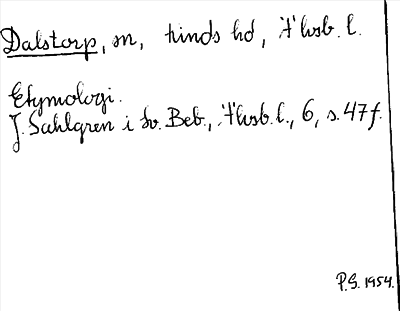 Dalstorp, sn, Kinds hd, Älvsb. l.
Etymologi.
J. Sahlgren i Sv. Beb., Älvsb. l., 6, s. 47 f.
P.G. 1954.